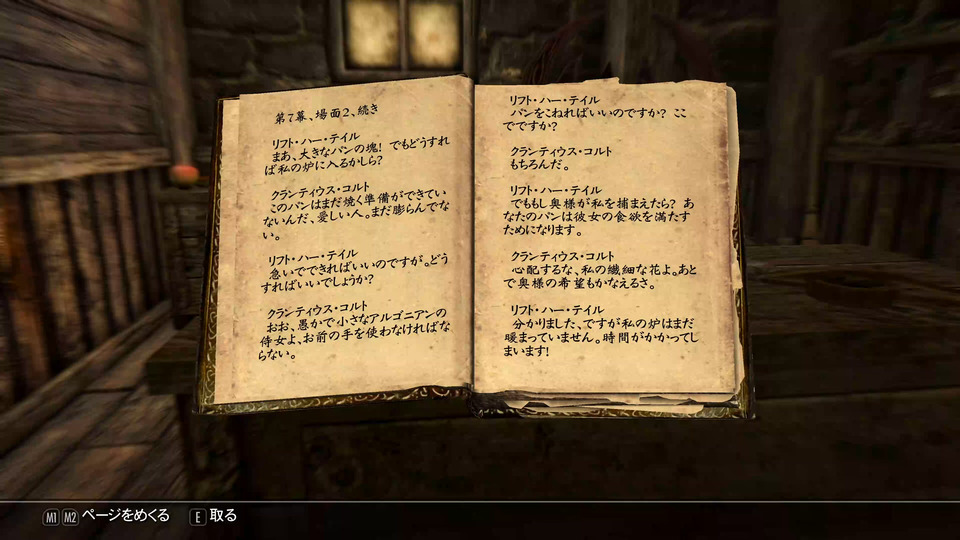 第7幕、場面2、続き
リフト・ハー・テイル
まあ、大きなパンの塊! でもどうすれ
ば私の炉に入るかしら?
クランティウス・コルト
このパンはまだ焼く準備ができてい
ないんだ、愛しい人。まだ膨らんでな
い。
リフト・ハー・テイル
急いでできればいいのですが。どう
すればいいでしょうか?
クランティウス・コルト
おお、愚かで小さなアルゴニアンの
侍女よ、お前の手を使わなければな
らない。
リフト・ハー・テイル
パンをこねればいいのですか? ここ
でですか?
クランティウス・コルト
もちろんだ。
リフト・ハー・テイル
でももし奥様が私を捕まえたら? あ
なたのパンは彼女の食欲を満たす
ためになります。
クランティウス・コルト
心配するな、私の繊細な花よ。あと
で奥様の希望もかなえるさ。
リフト・ハー・テイル
分かりました、ですが私の炉はまだ
暖まっていません。時間がかかってし
まいます!
M1 M2 ページをめくる E 取る